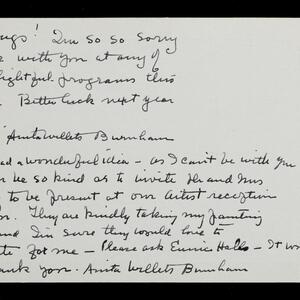 ngs! I'm so so sorry
with you at any of
lightful programs this
. Better luck next year
Anita Willets Burnham
ad a wonderful idea - as I can't be with you
be so kind as to invite Mr and Mrs
to be present at our artist reception
They are kindly taking my painting
and I'm sure they would love to
te for me - Please ask Eunice Halls - It wo
ank you. Anita Willets Burnham